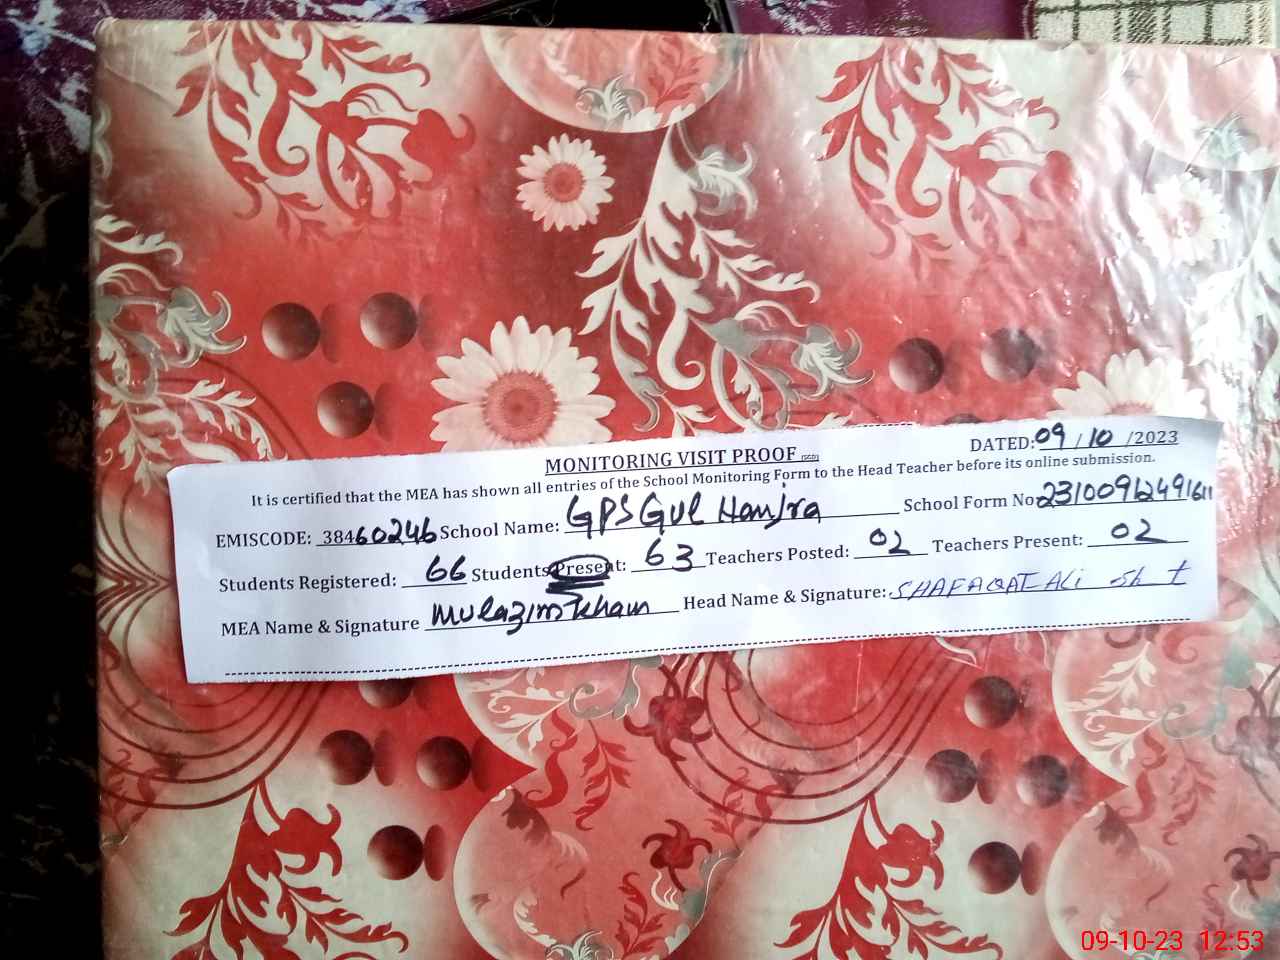 MONITORING VISIT PROOF
DATED: 09/10/2023
It is certified that the MEA has shown all entries of the School Monitoring Form to the Head Teacher before its online submission.
EMISCODE: 38460246 School Name: GPS Gul Hanjra School Form No 23100912491611
Students Registered: 66 Students Present: 63 Teachers Posted: 02 Teachers Present: 02
MEA Name & Signature Mulazim Khan Head Name & Signature: SHAFAQAT ALi
09-10-23 12:53